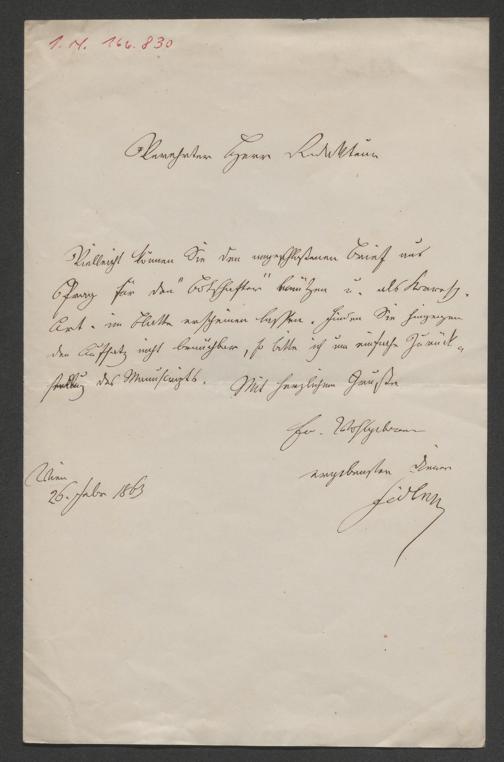 I. N. 166.830
Verehrter Herr Redakteur
Vielleicht können Sie den angeschloßenen Brief aus
Prag für den "Botschafter" benützen u. als
Art. im Blatte erscheinen lassen. Finden Sie hingegen
den Aufsatz nicht benutzbar, so bitte ich um einfache Zurück-
stellung des Manuscripts. Mit herzlichem Gruße
Ew. Wohlgeboren
ergebenster Diener
Wien
26. Febr 1863